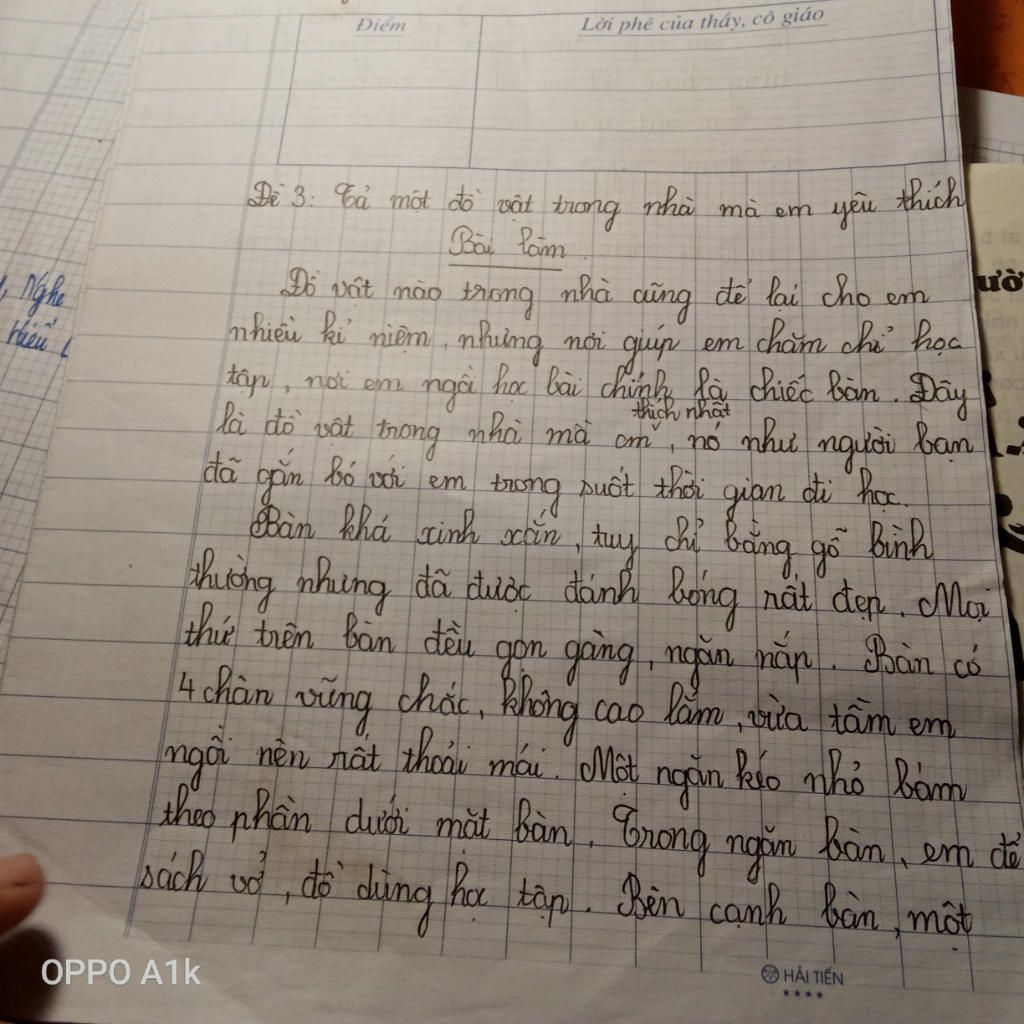 Điểm
Lời phê của thầy, cô giáo
Đề 3: Tả một đồ vật trong nhà mà em yêu thích
Bài làm
Đồ vật nào trong nhà cũng để lại cho em
nhiều kỉ niệm, nhưng nơi giúp em chăm chỉ học
tập, nơi em ngồi học bài chính là chiếc bàn. Đây
thích nhất
là đồ vật trong nhà mà em ˇ, nó như người bạn
đã gắn bó với em trong suốt thời gian đi học.
Bàn khá xinh xắn, tuy chỉ bằng gỗ bình
thường nhưng đã được đánh bóng rất đẹp. Mọi
thứ trên bàn đều gọn gàng, ngăn nắp. Bàn có
4 chân vững chắc, không cao lắm, vừa tầm em
ngồi nên rất thoải mái. Một ngăn kéo nhỏ bám
theo phần dưới mặt bàn. Trong ngăn bàn, em để
sách vở, đồ dùng học tập. Bên cạnh bàn, một
Nghe
hiểu
ườ
OPPO A1k
HẢI TIẾN